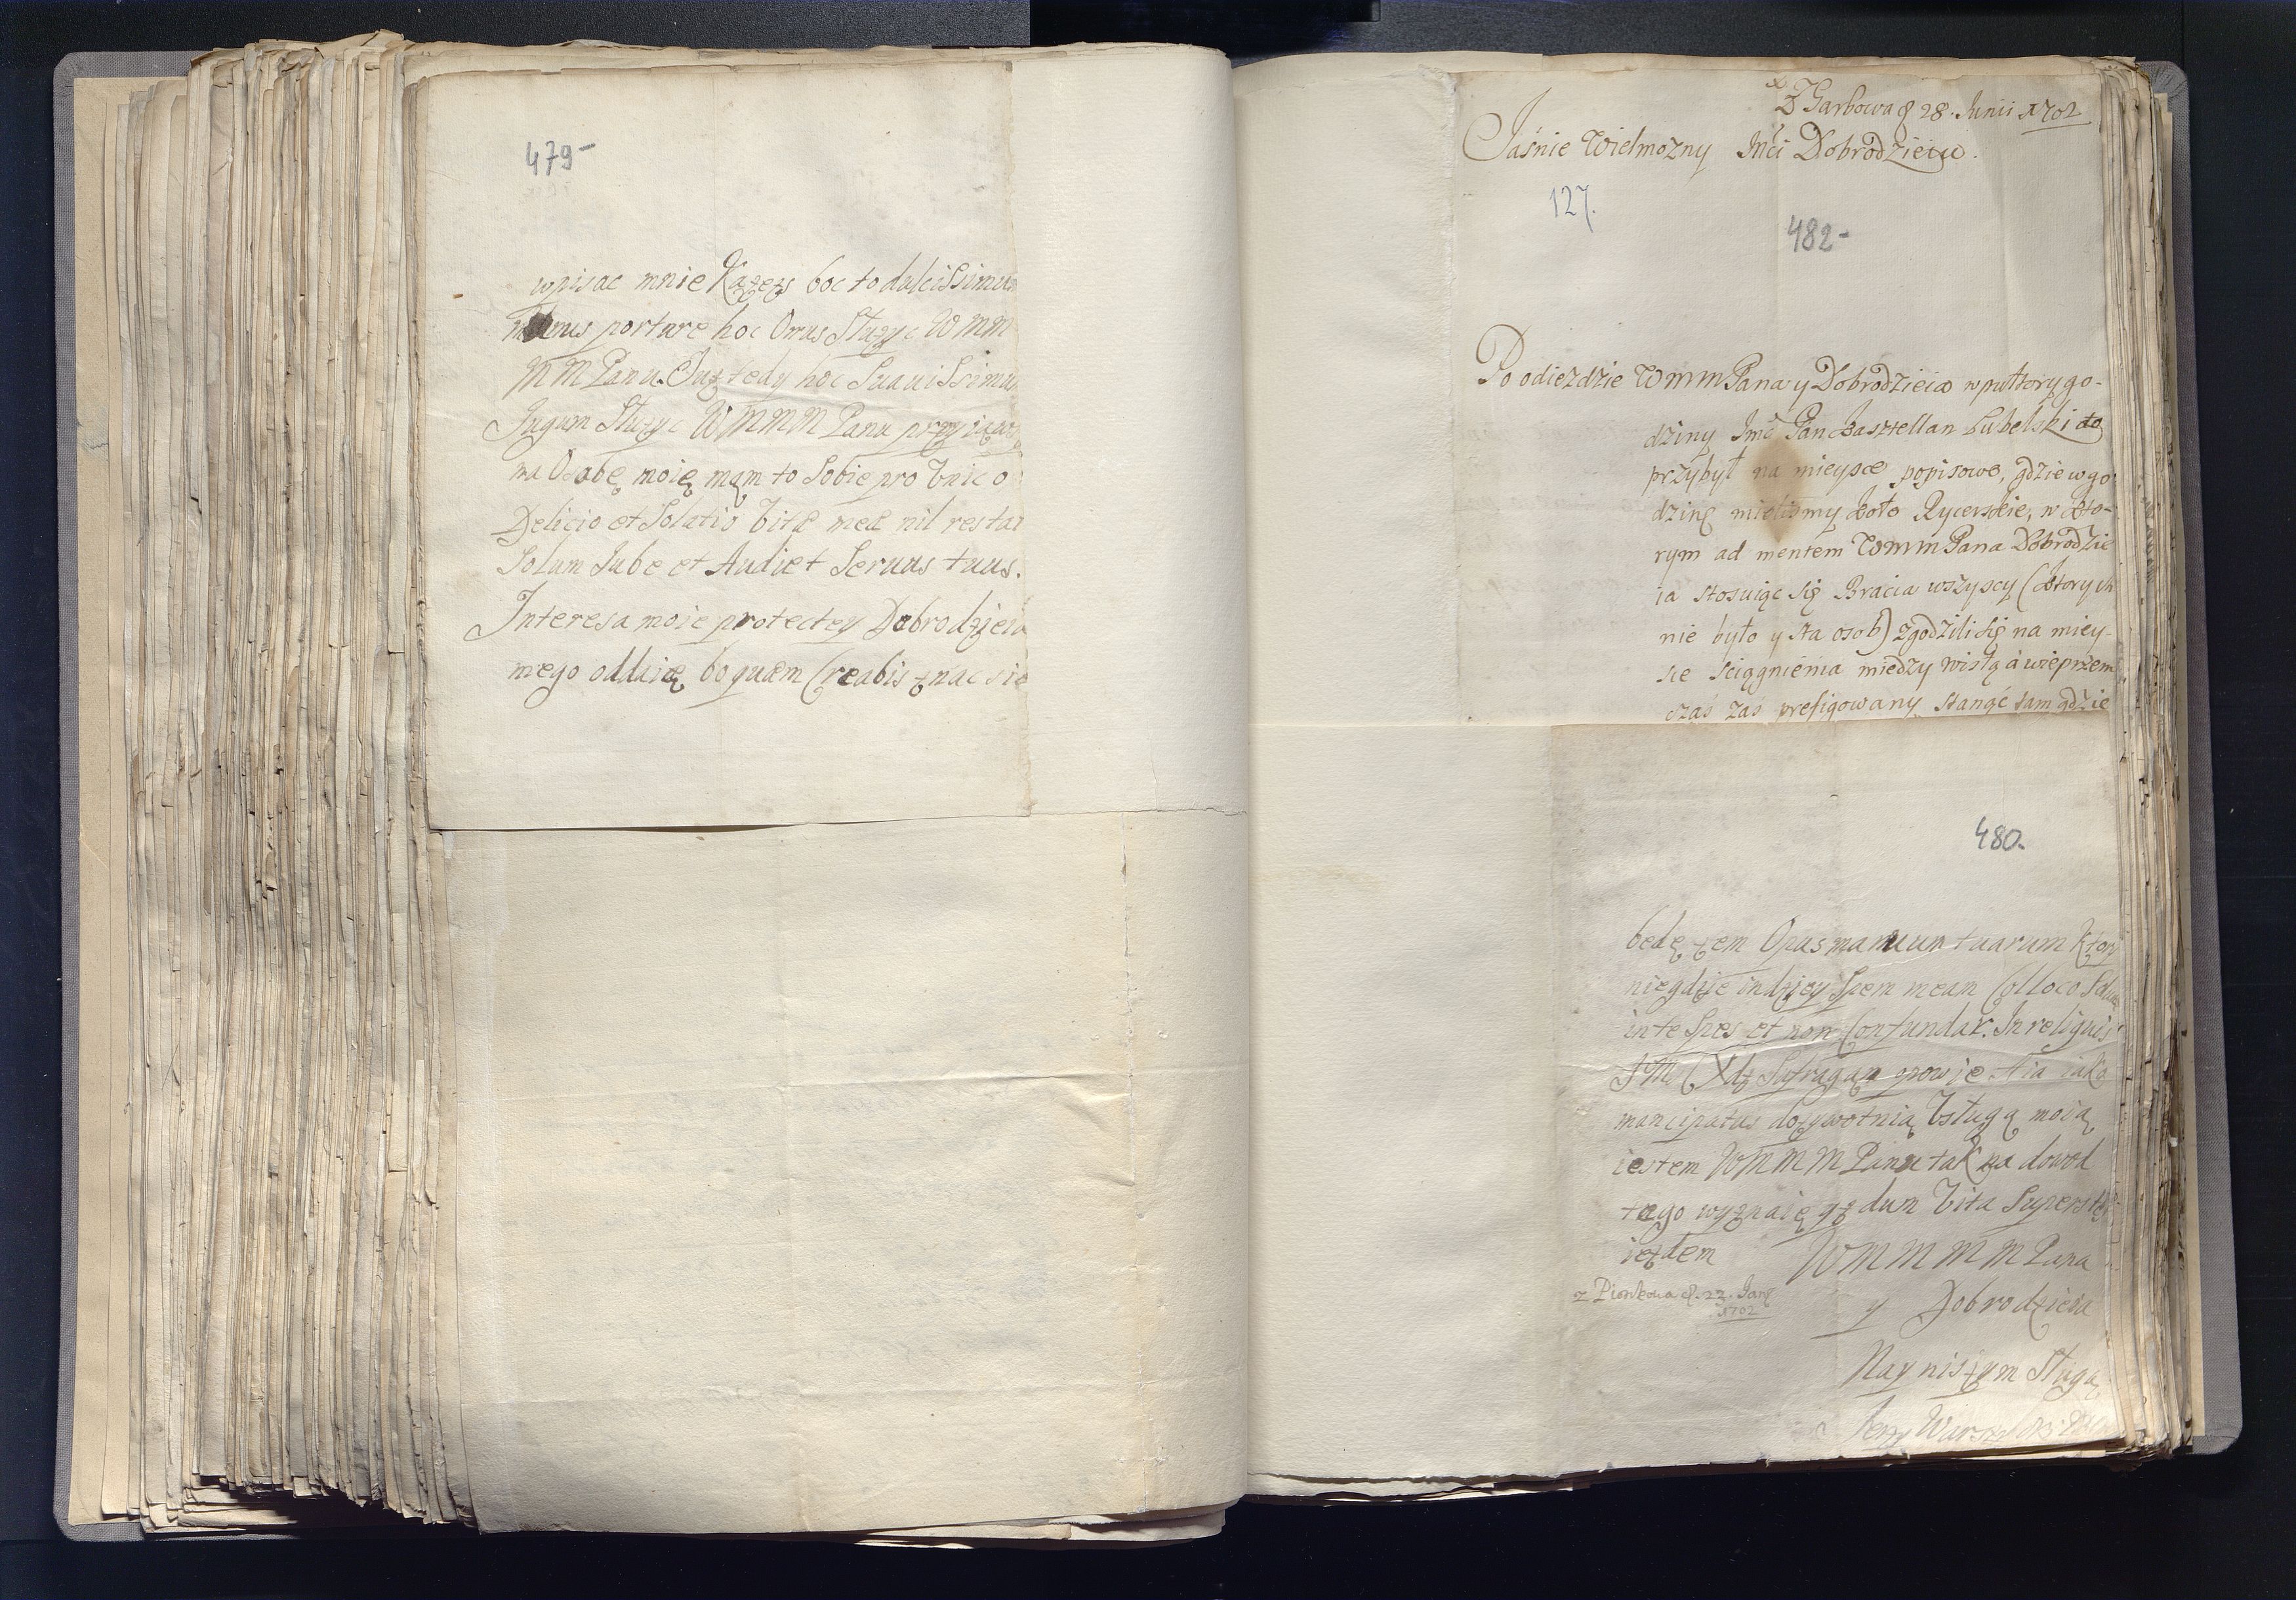 479-
wpisac mnie Każesz boc to dulcissimum
munus portare hoc Onus Służyc WMM
MM Panu. Już tedy hoc Suauissimu
Jugum Służyc WMMM Panu
na Osobę moię mąm to Sobie pro Vnico
Delicio et Solatio Vitæ meæ nil restat
Solum Jube et Audiet Seruus tuus.
Interesa moie protectey Dobrodzieia
mego oddaię bo quæm Creabis znac sie
Z Garbowa d 28. Junii 1702
Jaśnie Wielmożny Mći Dobrodzieiu.
127.
482-
Po odiezdzie WMM Pana y Dobrodzieia w pułtory go-
dziny Jmć Pan Kasztellan Lubelski do
przybył na mieysce popisowe, gdzie w go
dzinę mielismy Koło Rycerskie, w kto-
rym ad mentem WMM Pana Dobrodzie
ia stosuiąc się Bracia wszyscy (ktorych
nie było y sta osob) zgodzili się na miey-
sce sciągnienia miedzy Wisłą a wieprzem
czas zas prefigowany stanąć tam gdzie
480.
bedę zem Opus manuum tuarum
niegdzie indziey Spem meam Colloco
in te Spes et non Confundar. In reliquis
JMC Xdz Sufragan opowie. A ia iako
mancipatus dozywotnią Vsługą moią
iestem WMMM Panu tak na dowod
tego wyznaię yz dum Vita Superstes
iezdem WMMMM Pana
z Pionkowa d. 22. Janu
1702
y Dobrodzieia
Nayniszym Sługą
Jerzy